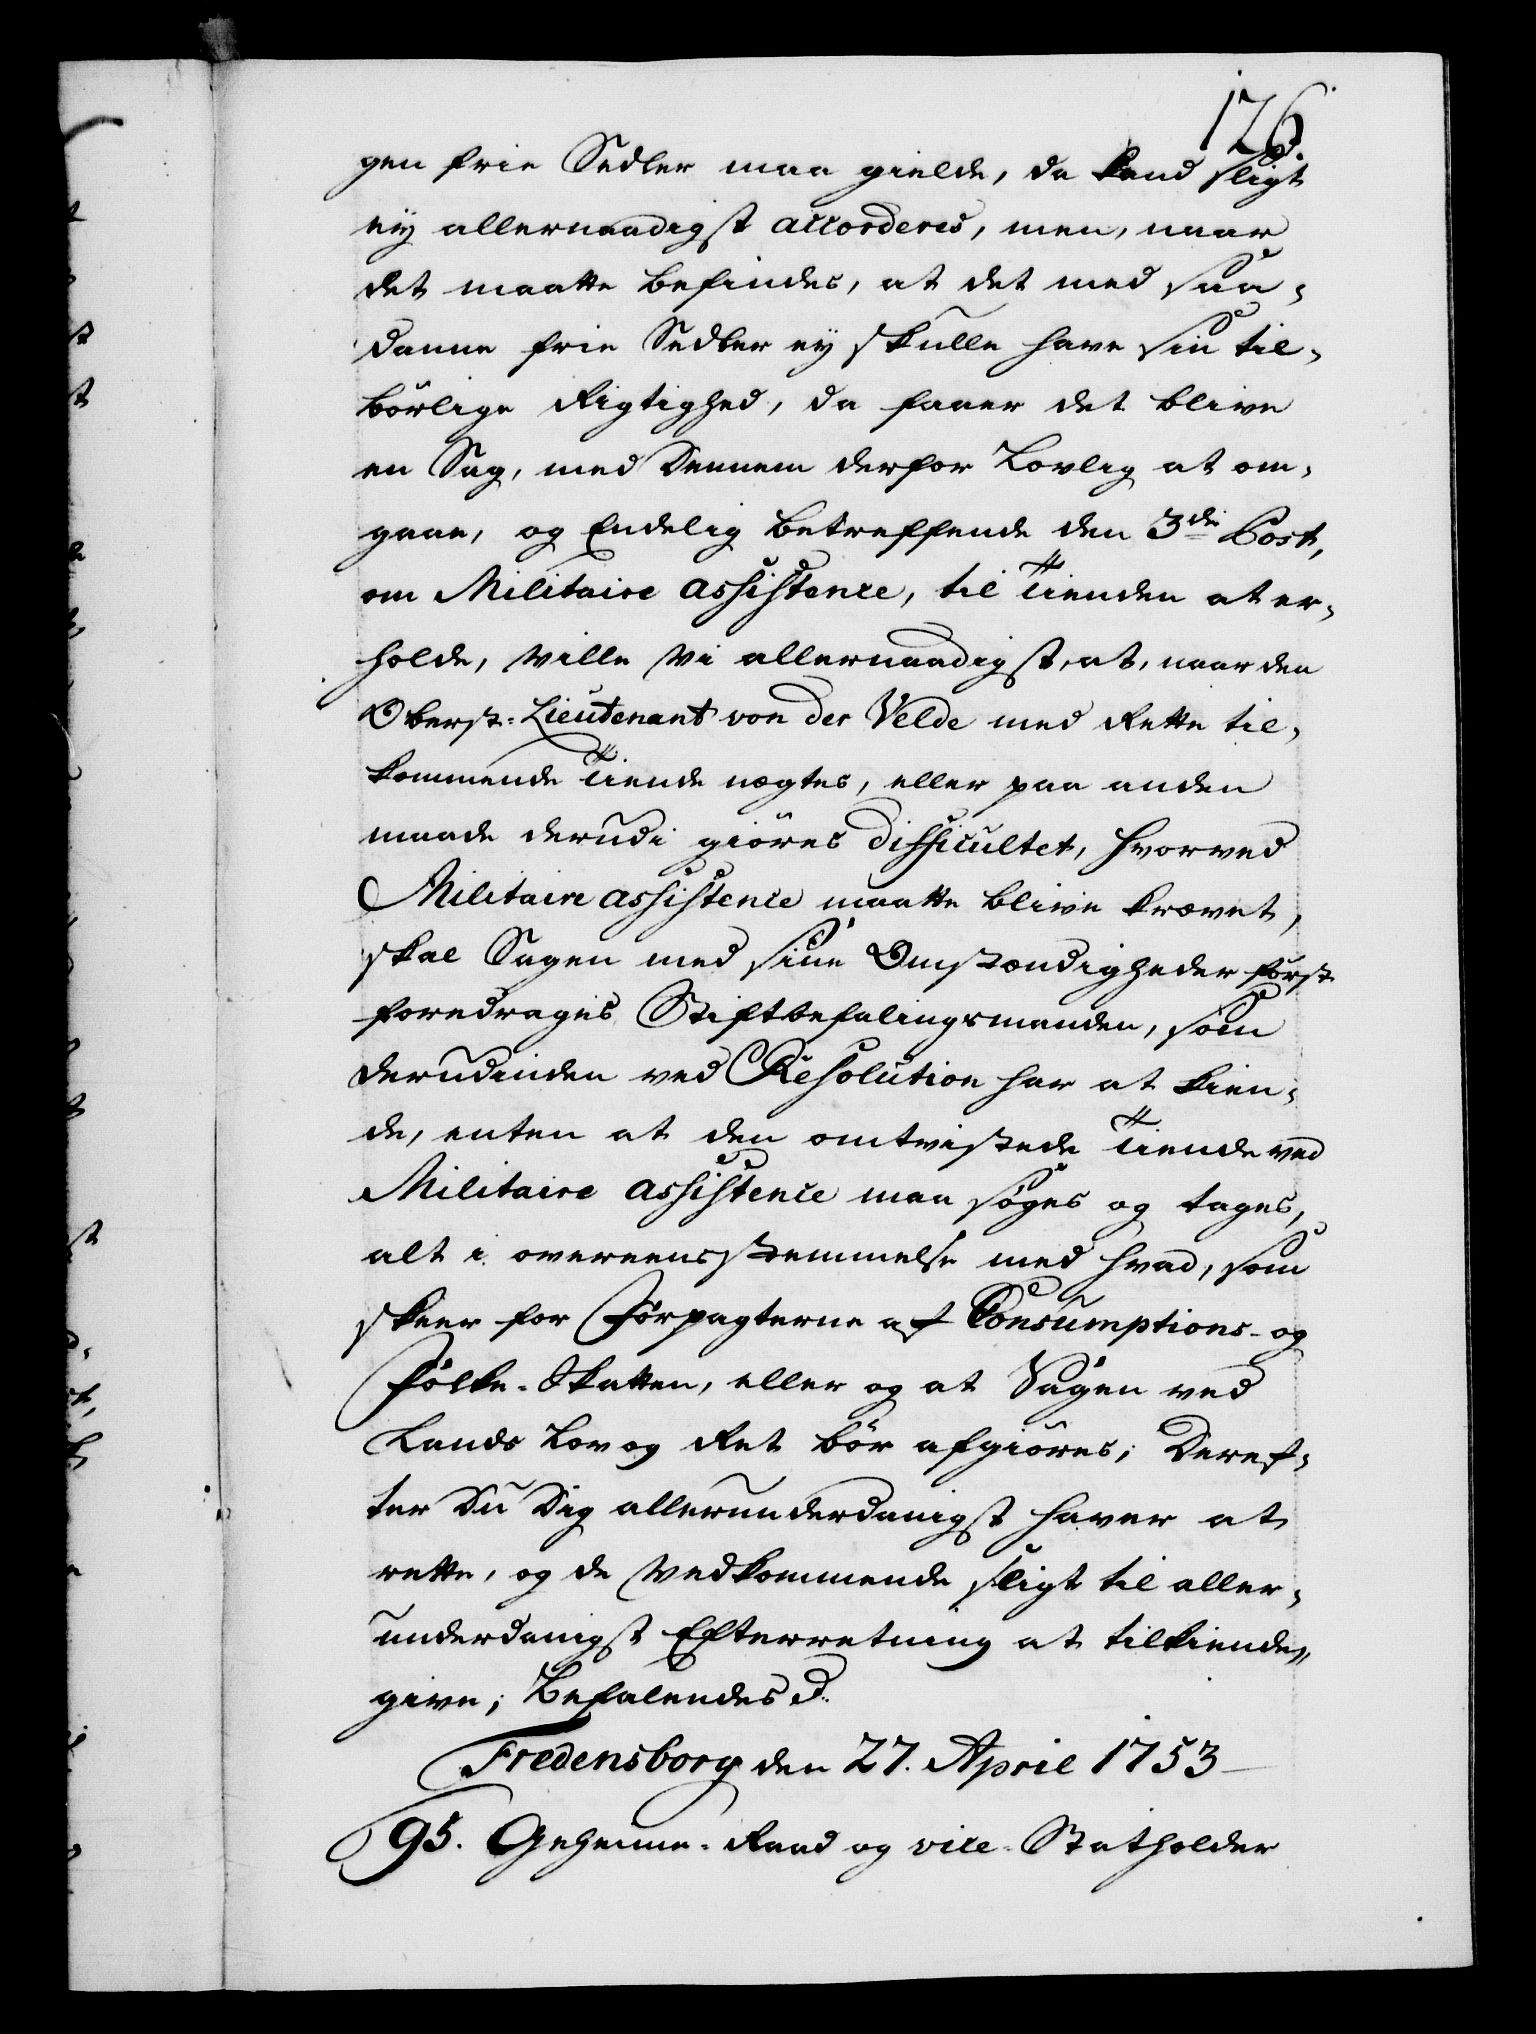 126.
gen frie Sedler maa gielde, da kand sligt
ey allernaadigst accorderes, men, naar
det maatte befindes, at det med saa-
danne frie Sedler ey skulle have sin til-
börlige Rigtighed, da faaer det blive
en Sag, med Dennem derfor Lovlig at om-
gaae, og Endelig betreffende den 3die Post,
om Militaire assistence, til Tienden at er-
holde, Ville Vi allernaadigst, at, naar den
Oberst-Lieutenant von der Velde med Rette til-
kommende Tiende nægtes, eller paa anden
maade derudi giöres difficultet, hvorved
Militaire assistence maatte blive krævet,
skal Sagen med sine Omstændigheder först
foredrages Stiftbefalingsmanden, som
derudinden ved Resolution har at kien-
de, enten at den omtvistede Tiende ved
Militaire assistence maa söges og tages,
alt i overeensstemmelse med hvad, som
skeer for Forpagterne af Consumptions- og
Folke-Skatten, eller og at Sagen ved
Lands Lov og Ret bör afgiöres; Deref-
ter Du Dig allerunderdanigst haver at
rette, og de Vedkommende sligt til aller-
underdanigst Efterretning at tilkiende-
give; Befalendes d.
Fredensborg den 27. April 1753
95. Geheime-Raad og vice-Statholder